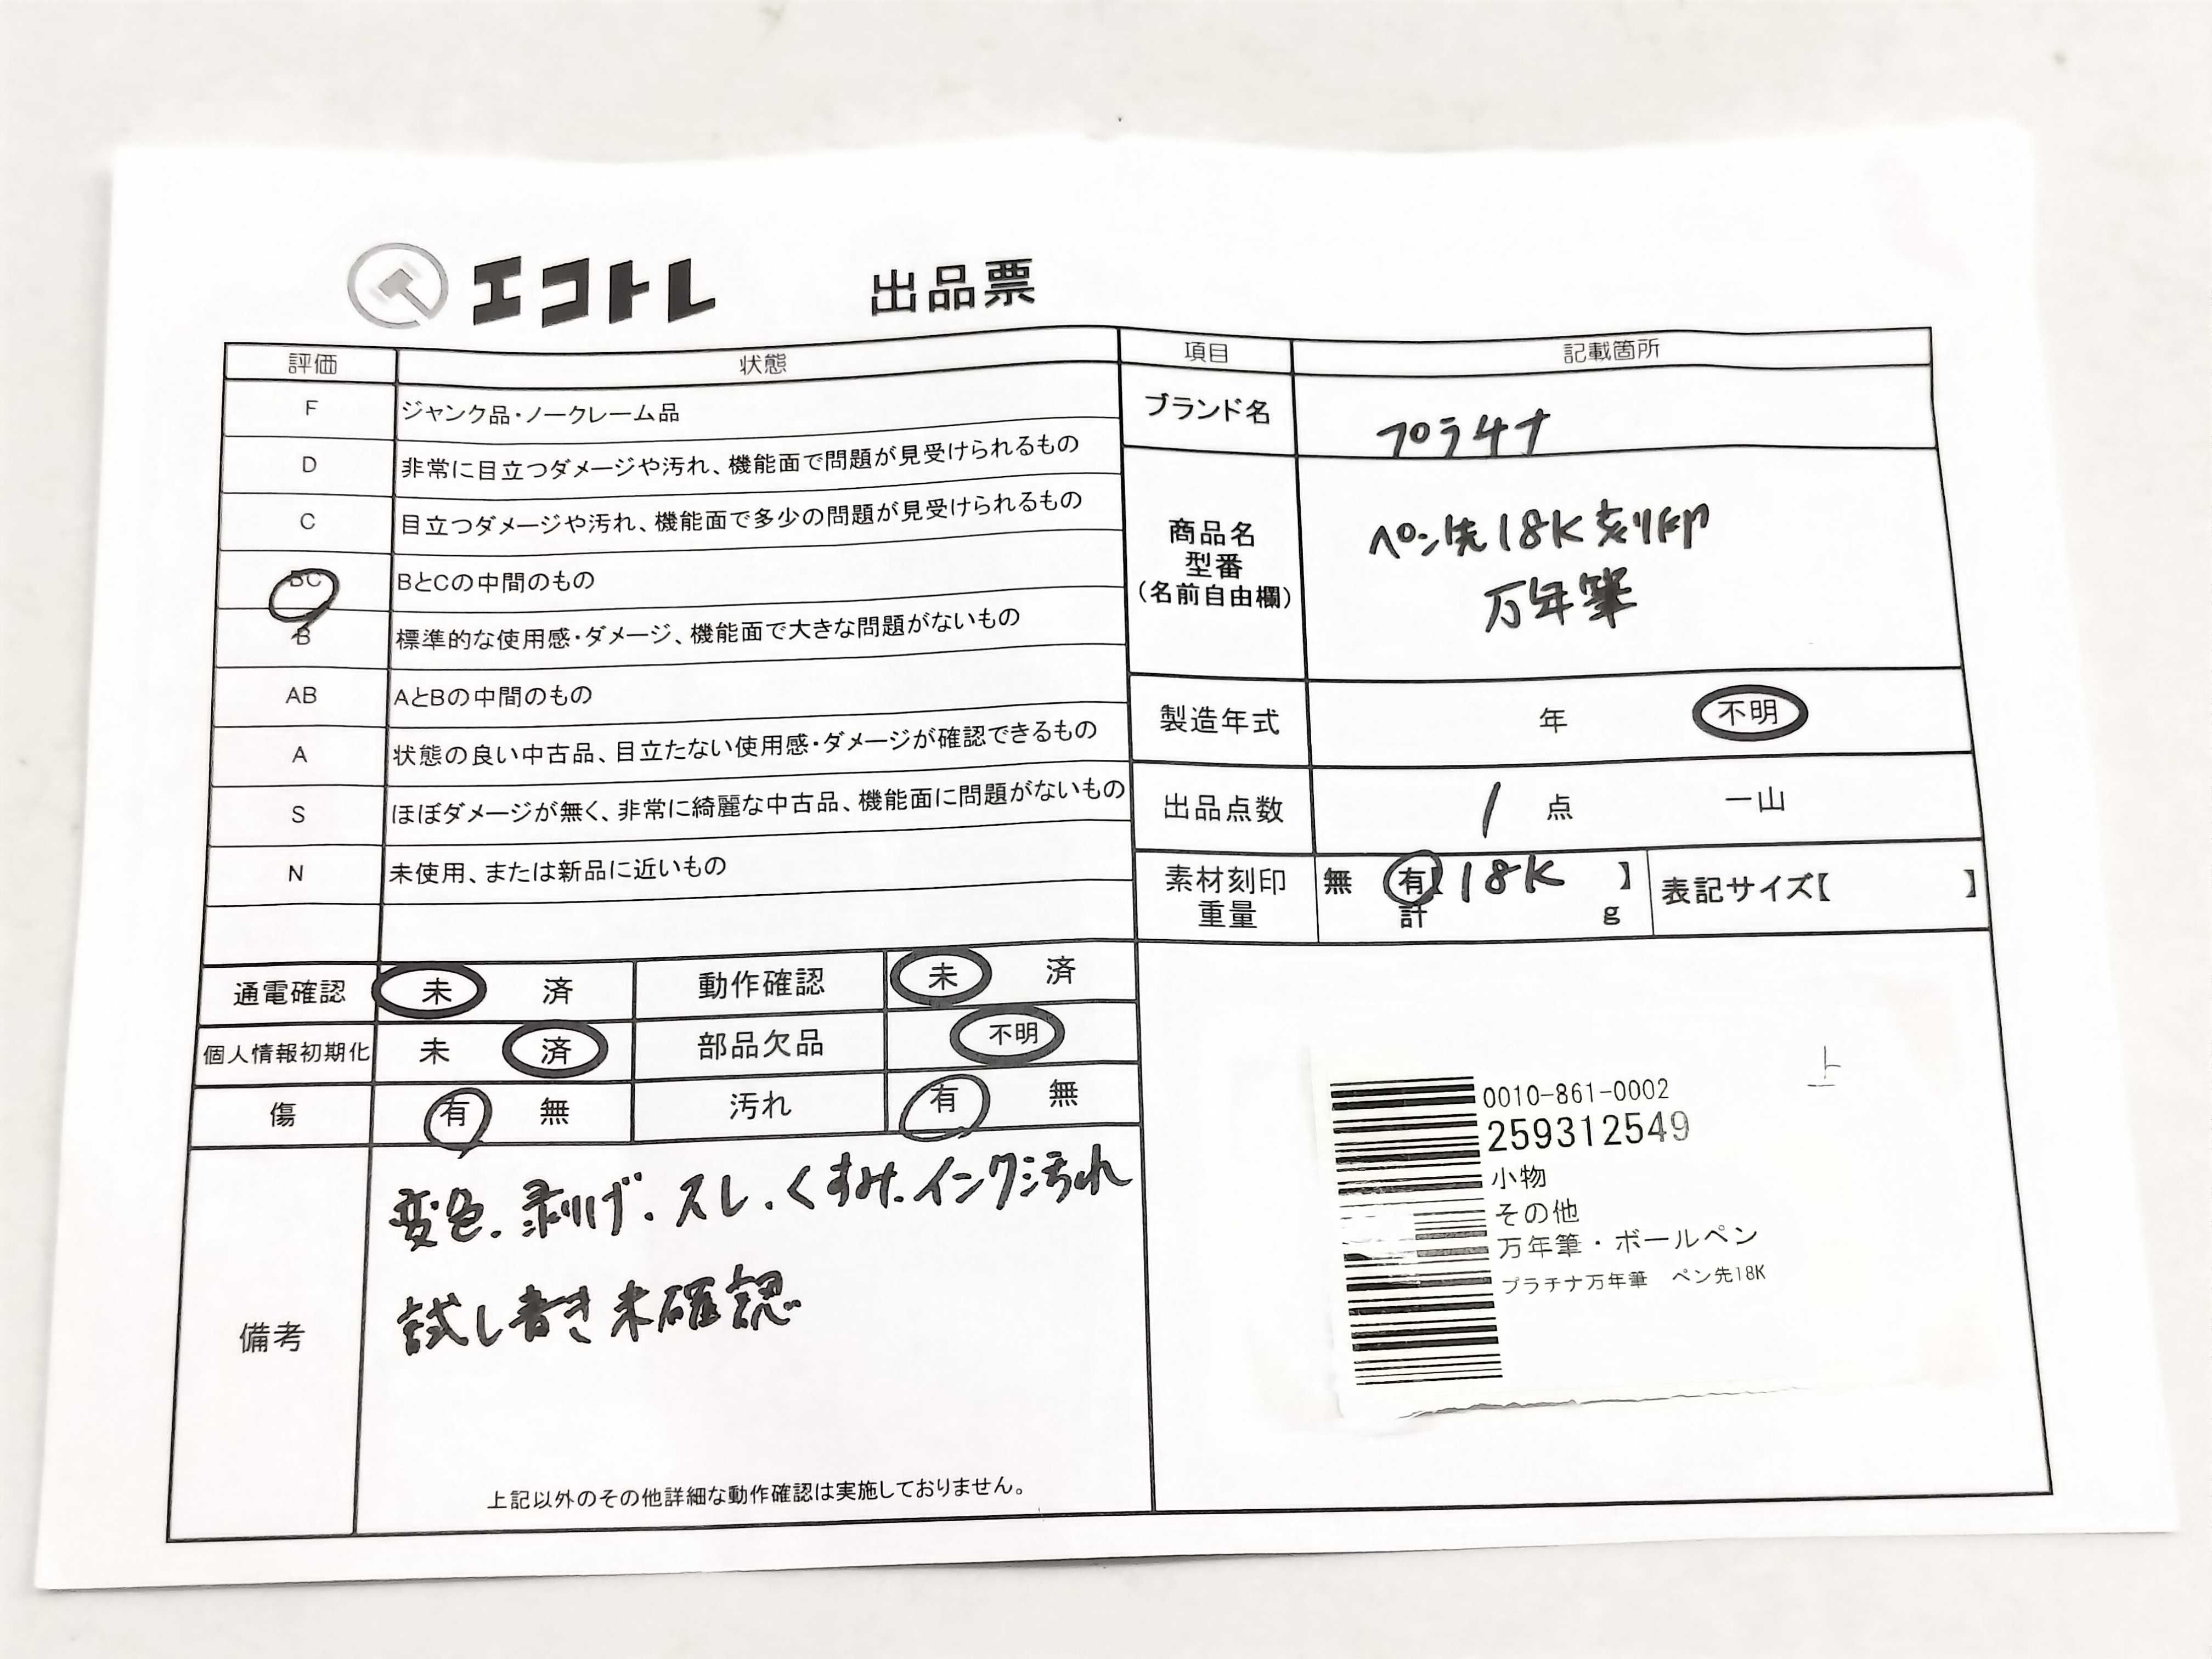 エコトレ 出品票
評価 状態
F ジャンク品・ノークレーム品
D 非常に目立つダメージや汚れ、機能面で問題が見受けられるもの
C 目立つダメージや汚れ、機能面で多少の問題が見受けられるもの
BC BとCの中間のもの
B 標準的な使用感・ダメージ、機能面で大きな問題がないもの
AB AとBの中間のもの
A 状態の良い中古品、目立たない使用感・ダメージが確認できるもの
S ほぼダメージが無く、非常に綺麗な中古品、機能面に問題がないもの
N 未使用、または新品に近いもの
通電確認 未 済 動作確認 未 済
個人情報初期化 未 済 部品欠品 不明
傷 有 無 汚れ 有 無
備考
変色.剥げ.スレ.くすみ.インク汚れ
試し書き未確認
上記以外のその他詳細な動作確認は実施しておりません。
項目 記載箇所
ブランド名 プラチナ
商品名
型番
(名前自由欄)
ペン先18K刻印
万年筆
製造年式 年 不明
出品点数 1 点 一山
素材刻印 無 有【18K 】 表記サイズ【 】
重量 計 g
上
0010-861-0002
259312549
小物
その他
万年筆・ボールペン
プラチナ万年筆 ペン先18K